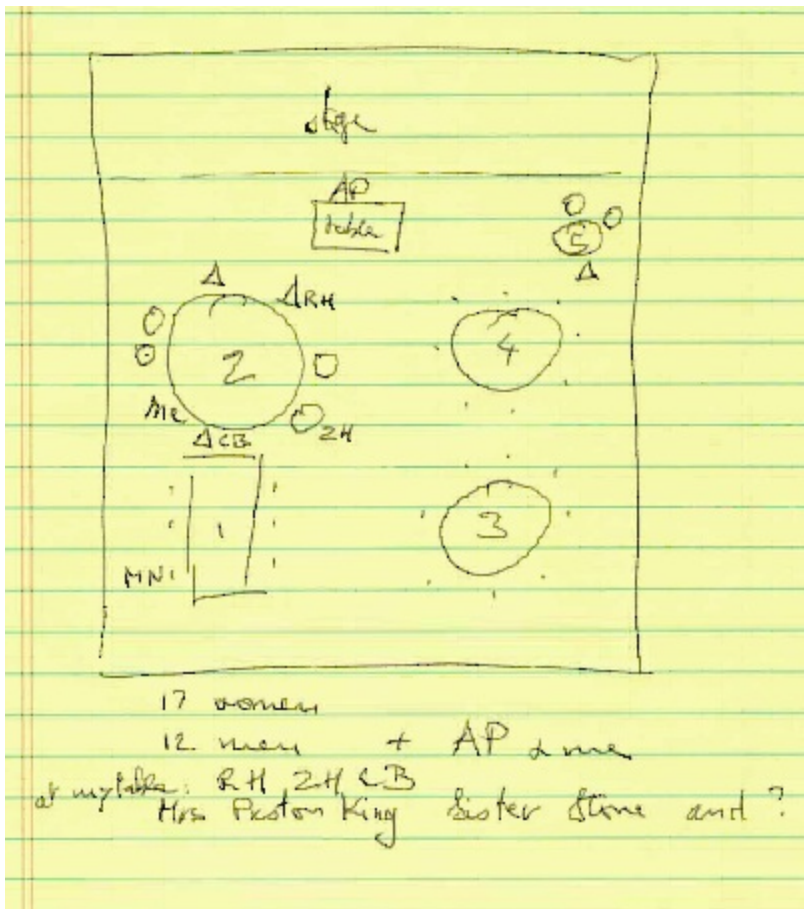 stage
AP
table
5
Δ
Δ RH
2
4
Me
ZH
Δ CB
1
3
MN
17 women
12 men + AP & me
at my table: RH ZH CB
Mrs. Preston King Sister Stone and ?